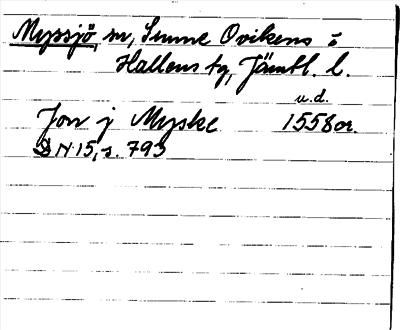 Myssjö, sn, Sunne Ovikens o
Hallens tg, Jämtl. l.
Jon j Myske u.d. 1558 or.
DN 15, s. 793